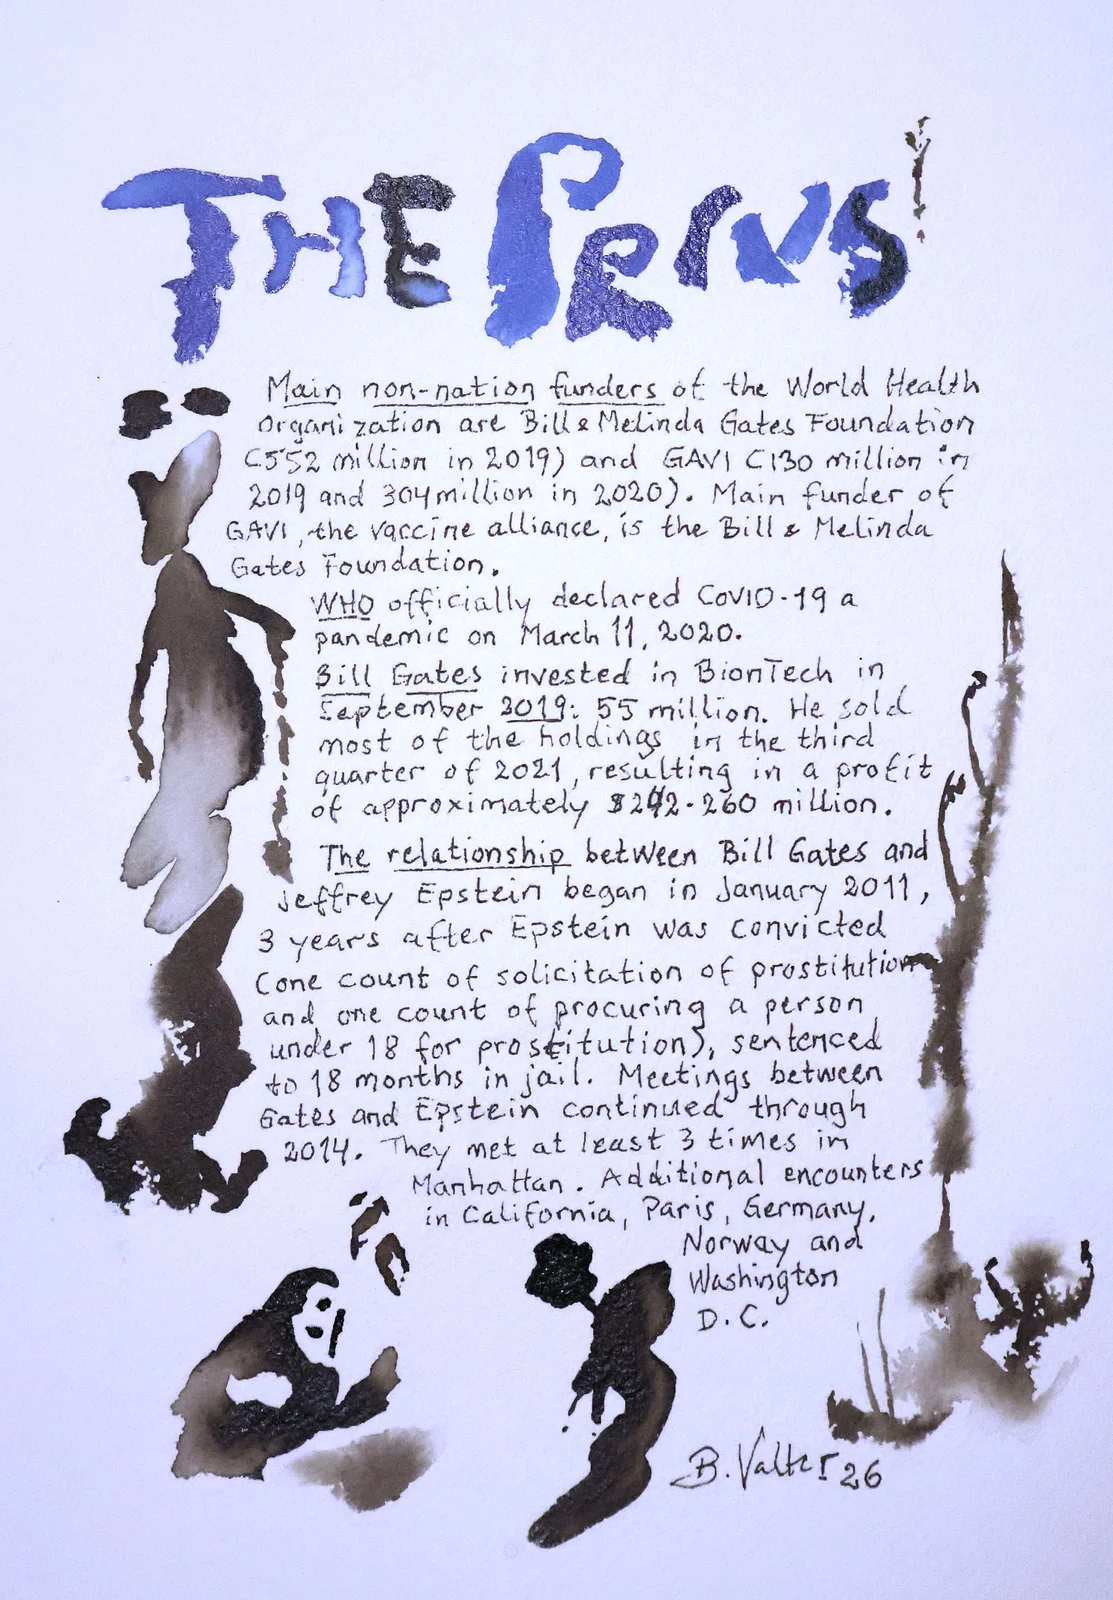 THE PRIUS
Main non-nation funders of the World Health
Organization are Bill & Melinda Gates Foundation
(552 million in 2019) and GAVI (130 million in
2019 and 304 million in 2020). Main funder of
GAVI, the vaccine alliance, is the Bill & Melinda
Gates Foundation.
WHO officially declared CoVID-19 a
pandemic on March 11, 2020.
Bill Gates invested in BionTech in
September 2019: 55 million. He sold
most of the holdings in the third
quarter of 2021, resulting in a profit
of approximately $242-260 million.
The relationship between Bill Gates and
Jeffrey Epstein began in January 2011,
3 years after Epstein was convicted
(one count of solicitation of prostitution
and one count of procuring a person
under 18 for prostitution), sentenced
to 18 months in jail. Meetings between
Gates and Epstein continued through
2014. They met at least 3 times in
Manhattan. Additional encounters
in California, Paris, Germany,
Norway and
Washington
D.C.
B. Valter 26